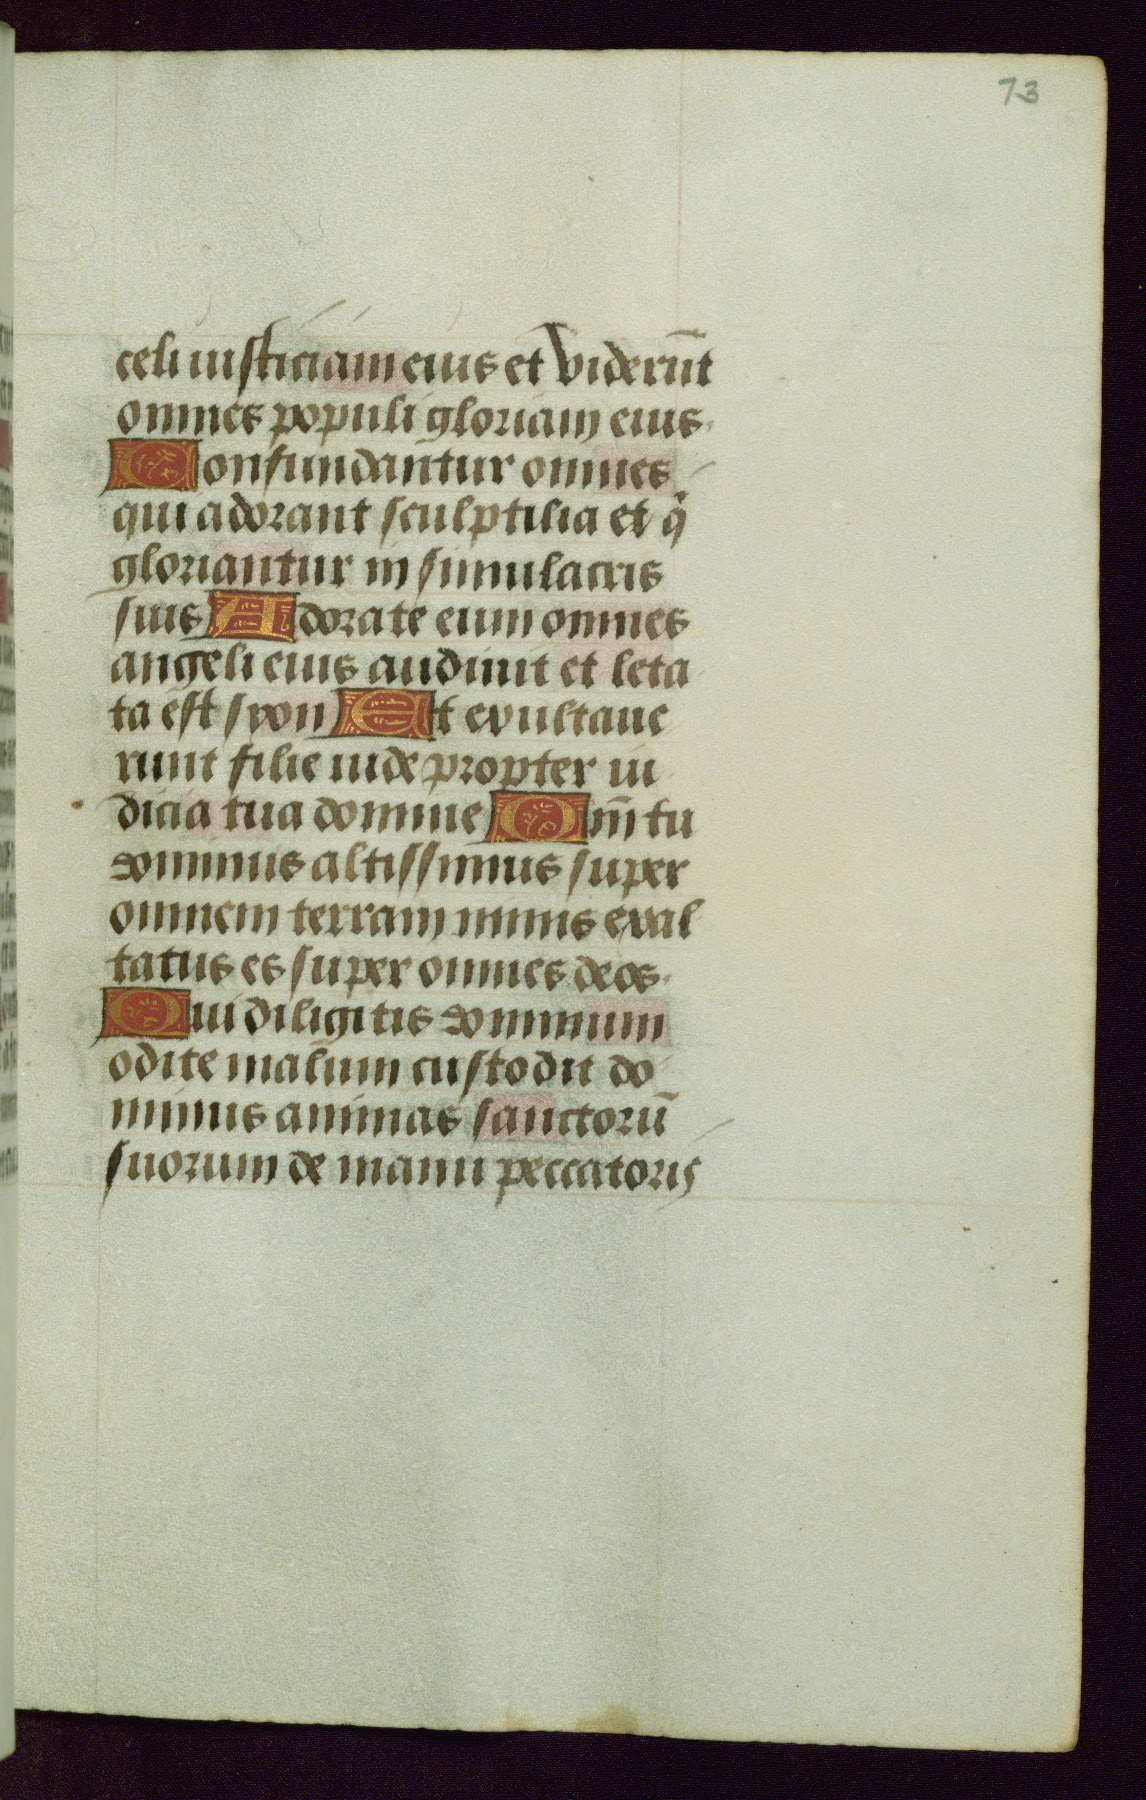 73
celi iusticiam eius et viderūt
omnes populi gloriam eius.
Confundantur omnes
qui adorant sculptilia et q̇
gloriantur in simulacris
suis Adorate eum omnes
angeli eius audiuit et leta
ta est syon Et exultaue
runt filie iude propter iu
dicia tua domine Qm̄ tu
dominus altissimus super
omnem terram nimis exal
tatus es super omnes deos.
Qui diligitis dominum
odite malum custodit do
minus animas sanctorū
suorum de manu peccatoris